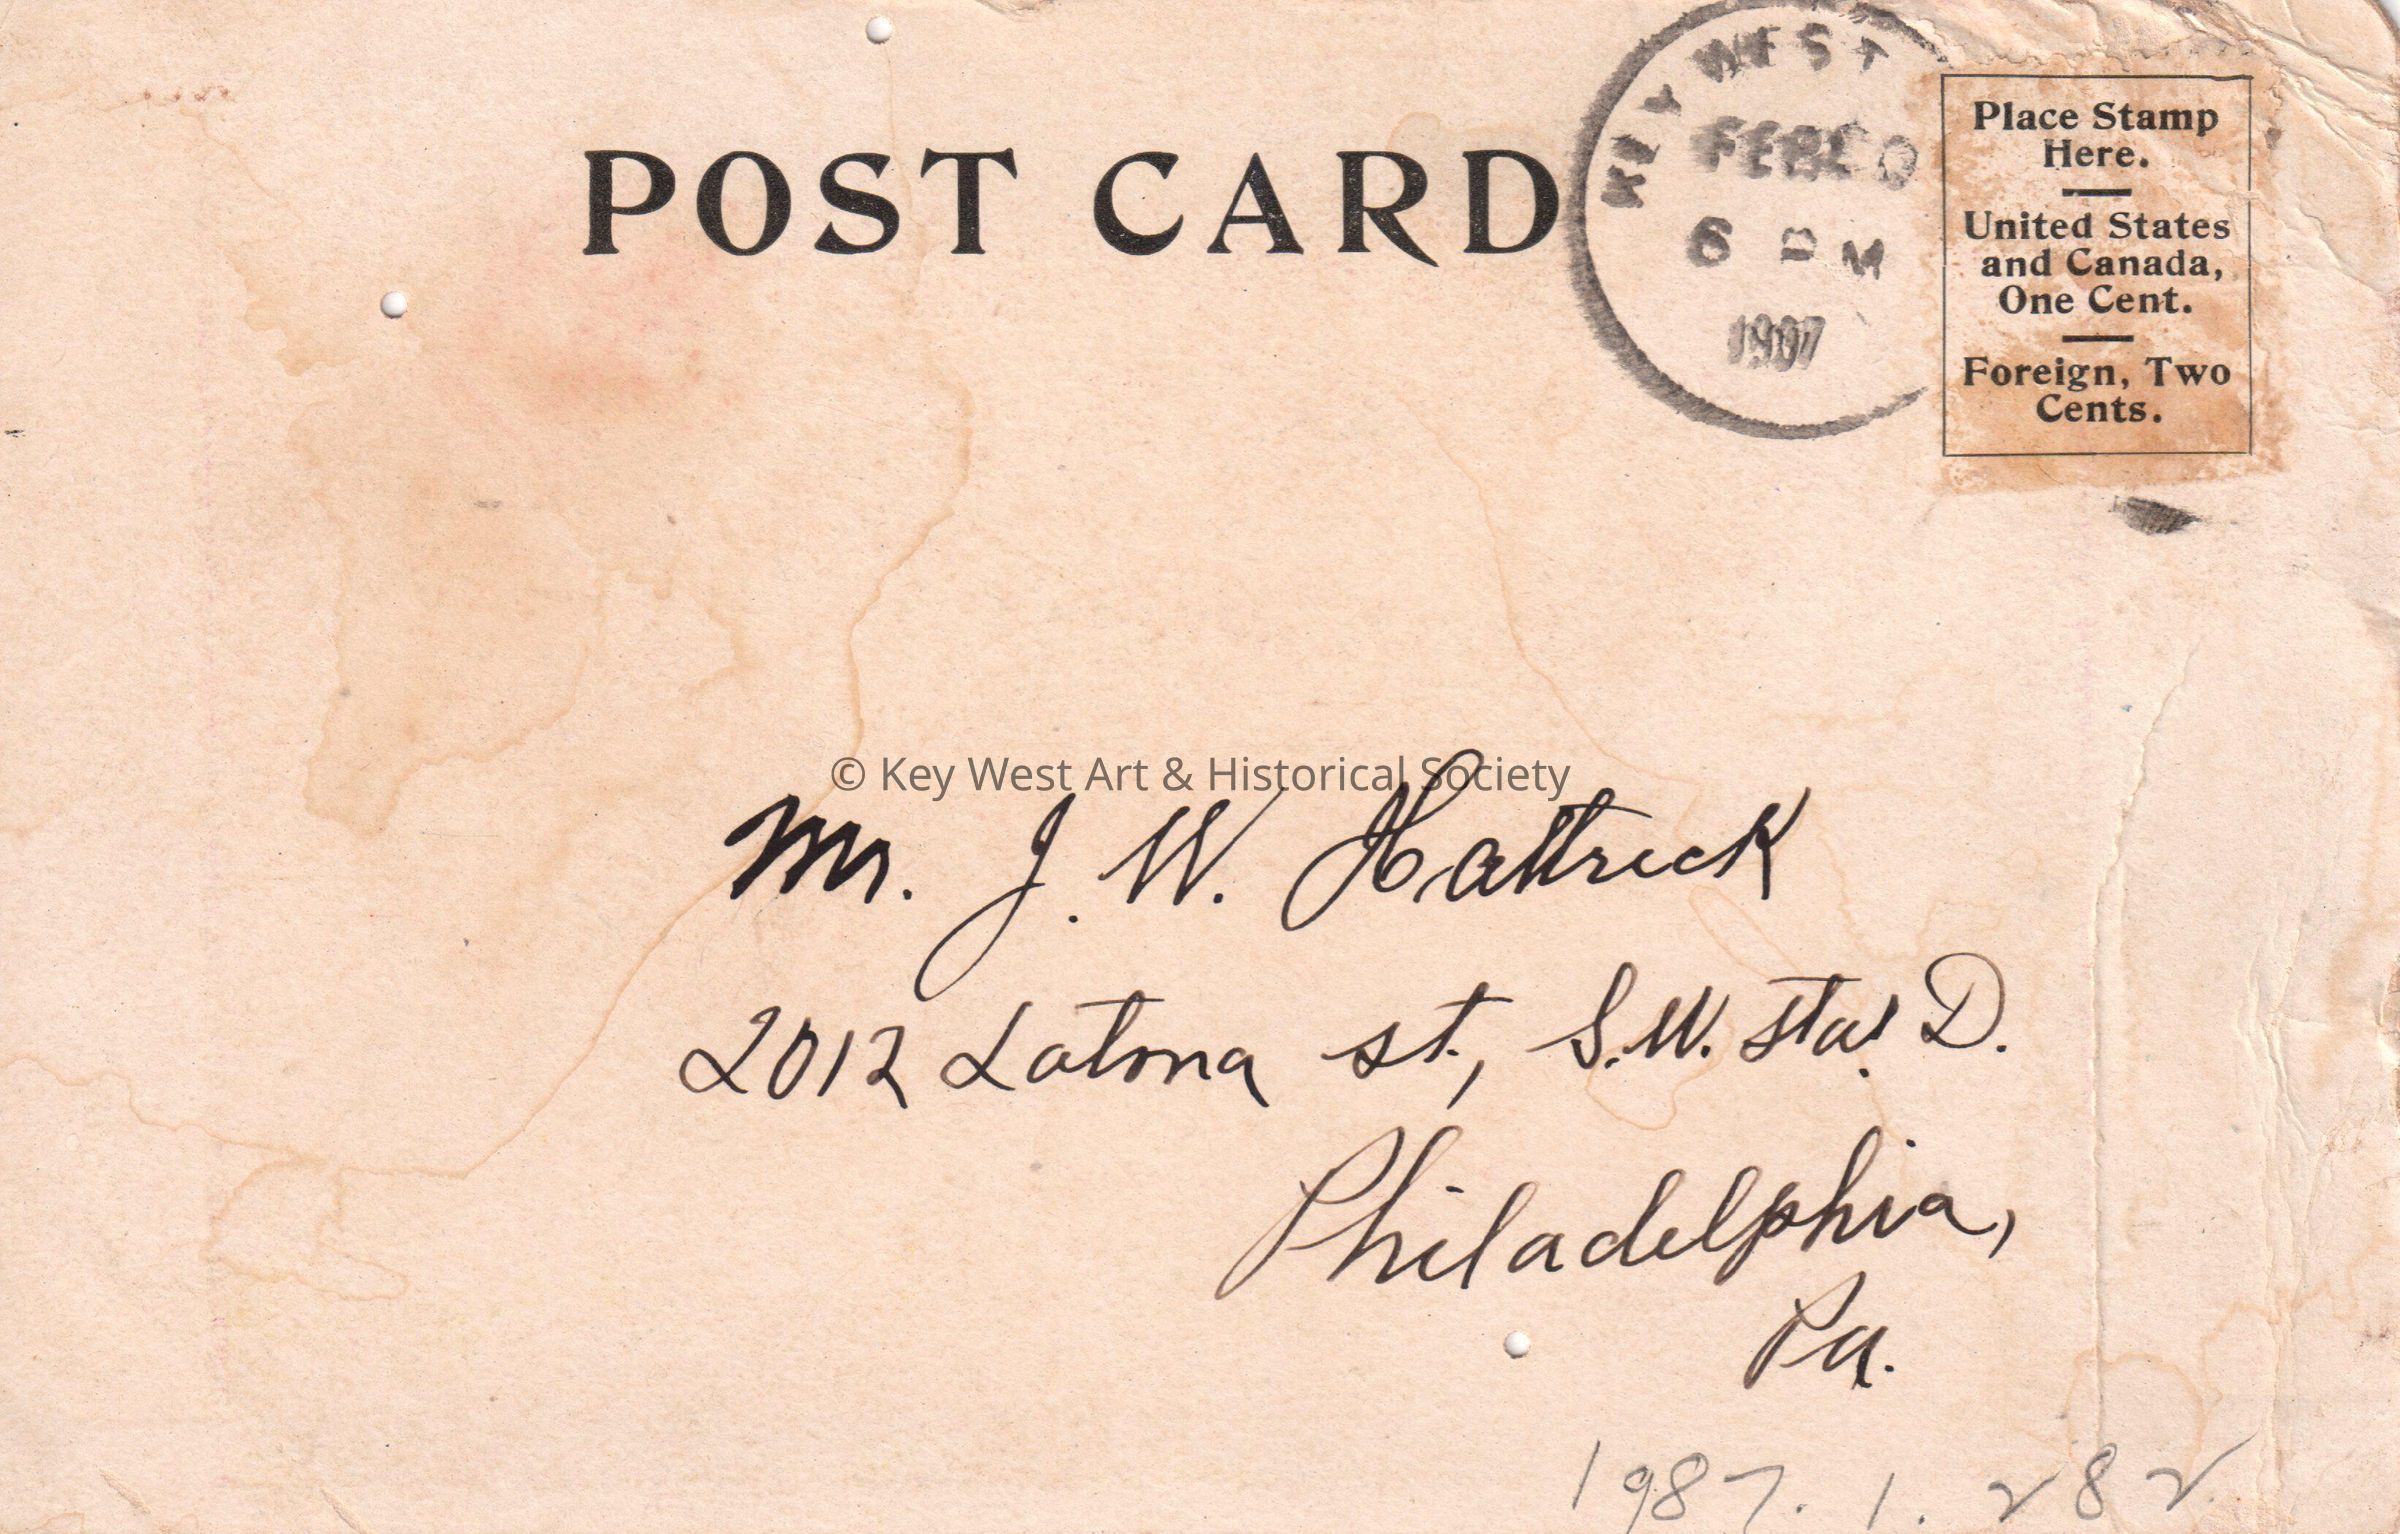 POST CARD
KEY WEST
FEB 20
6 PM
1907
Place Stamp
Here.
United States
and Canada,
One Cent.
Foreign, Two
Cents.
© Key West Art & Historical Society
Mr. J. W. Hattrick
2012 Latona st., S.W. sta. D.
Philadelphia,
Pa.
1987.1.282